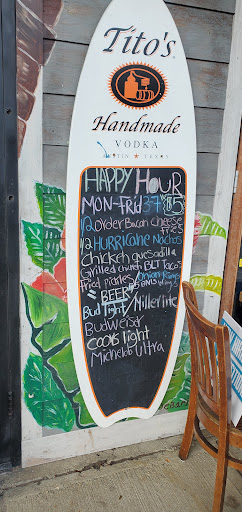 Tito's
Handmade
VODKA
AUSTIN ★ TEXAS
HAPPY HOUR
MON-Frid 3-7 $5
1/2 order Bacon Cheese Fries
1/2 HURRICANE Nachos
chicken quesadilla
Grilled church BLT Tacos
fried pickles Onion Rings
5 Wings
"BEER"
Bud light Miller lite
Budweiser
coors light
Michelob Ultra